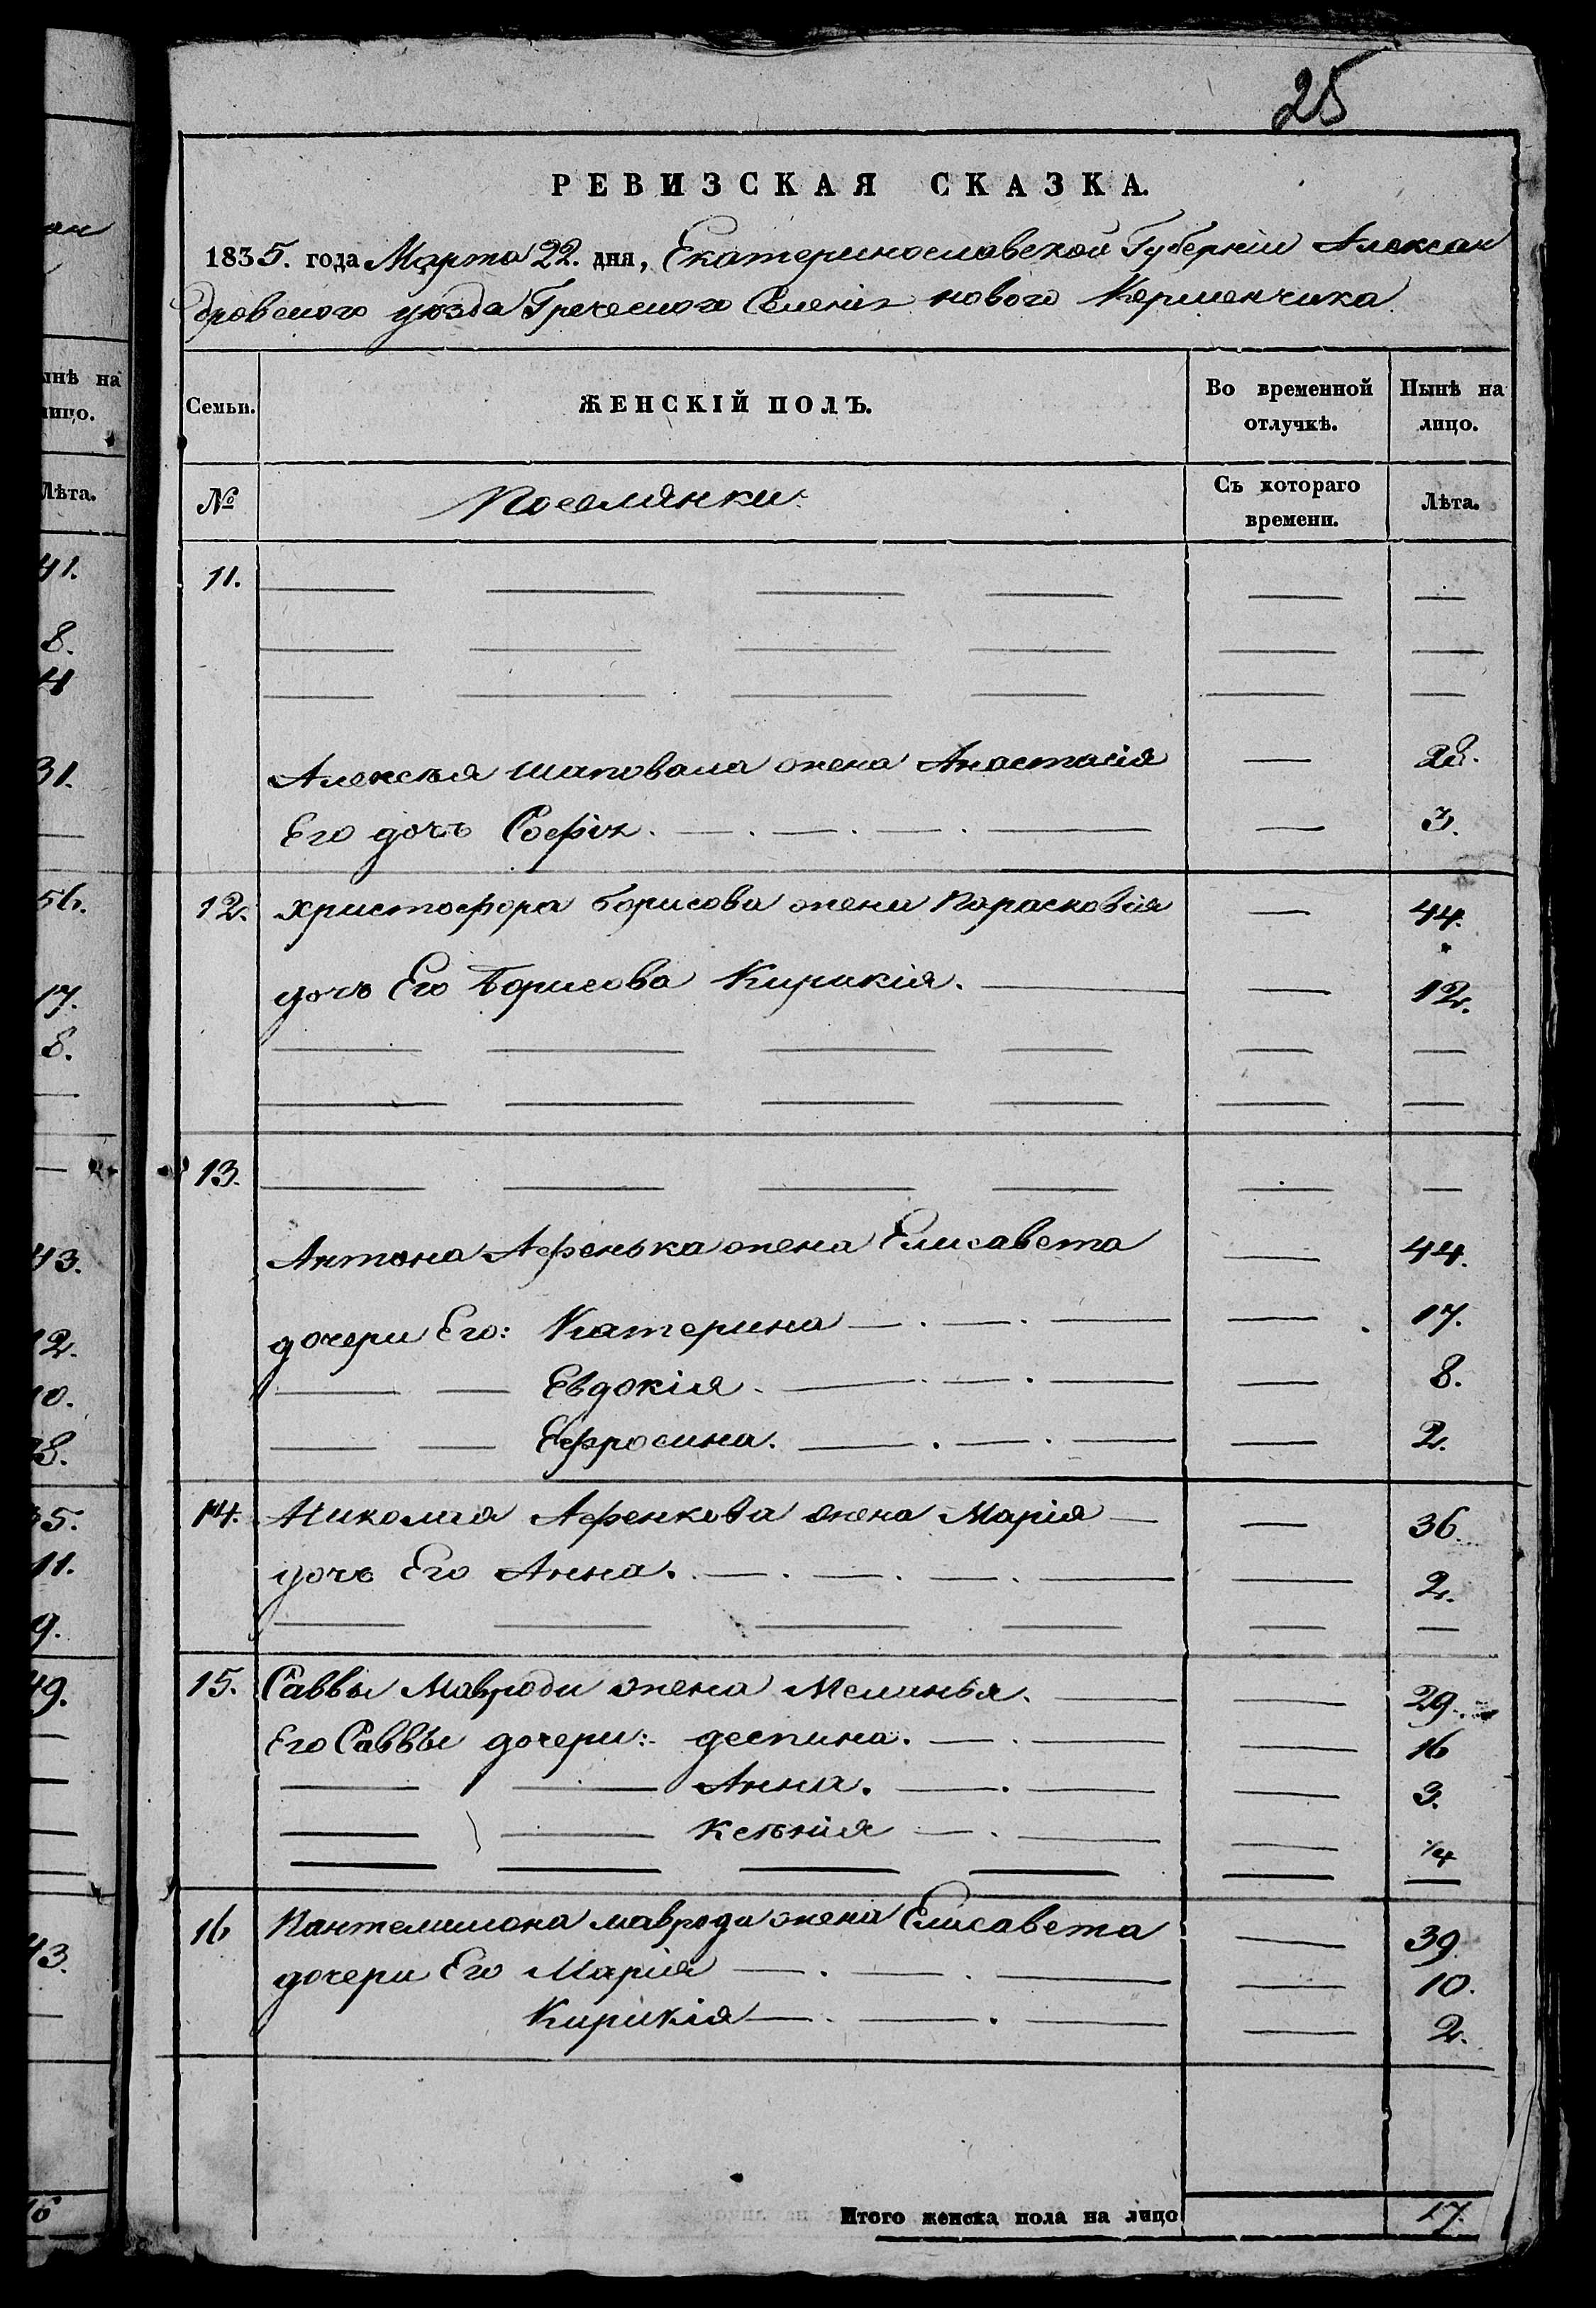 25
РЕВИЗСКАЯ СКАЗКА.
1835. года Марта 22. дня, Екатеринославской Губерніи Алексан
дровского уезда Греческого Селенія нового Керменчика.
Семьи.
ЖЕНСКІЙ ПОЛЪ.
Во временной отлучкѣ.
Нынѣ на лицо.
№
Поселянки.
Съ котораго времени.
Лѣта.
11. — — — — — —
— — — — — —
— — — — — —
Алексѣя шаповала жена Анастасія — 28.
Его дочь Софія. — . — . — . — — 3.
12. христофора борисова жена Парасковія — 44.
дочь Его Борисова Кирикія. — — 12.
— — — — — —
— — — — — —
13. — — — — — —
Антона Афенька жена Елисавета — 44.
дочери Его: Катерина — . — . — — 17.
— — Евдокія. — . — . — — 8.
— — Ефросина. — . — . — — 2.
14. Николая Афенкова жена Марія — — 36
дочь Его Анна. — . — . — . — — 2.
— — — — — —
15. Саввы Мавроди жена Меланья. — — 29.
Его Саввы дочери: деспина. — . — — 16
— — Анна. — . — — 3.
— — Ксѣнія — . — — 1/4
— — — — — —
16 Пантелимона мавроди жена Елисавета — 39.
дочери Его Марія — . — . — — 10.
Кирикія — . — . — — 2.
Итого женска пола на лицо 17.
ан
ынѣ на
лицо.
Лѣта.
41.
8.
4
31.
—
56.
17.
8.
—
—
43.
12.
10.
8.
35.
11.
9.
49.
—
—
—
—
43.
—
16